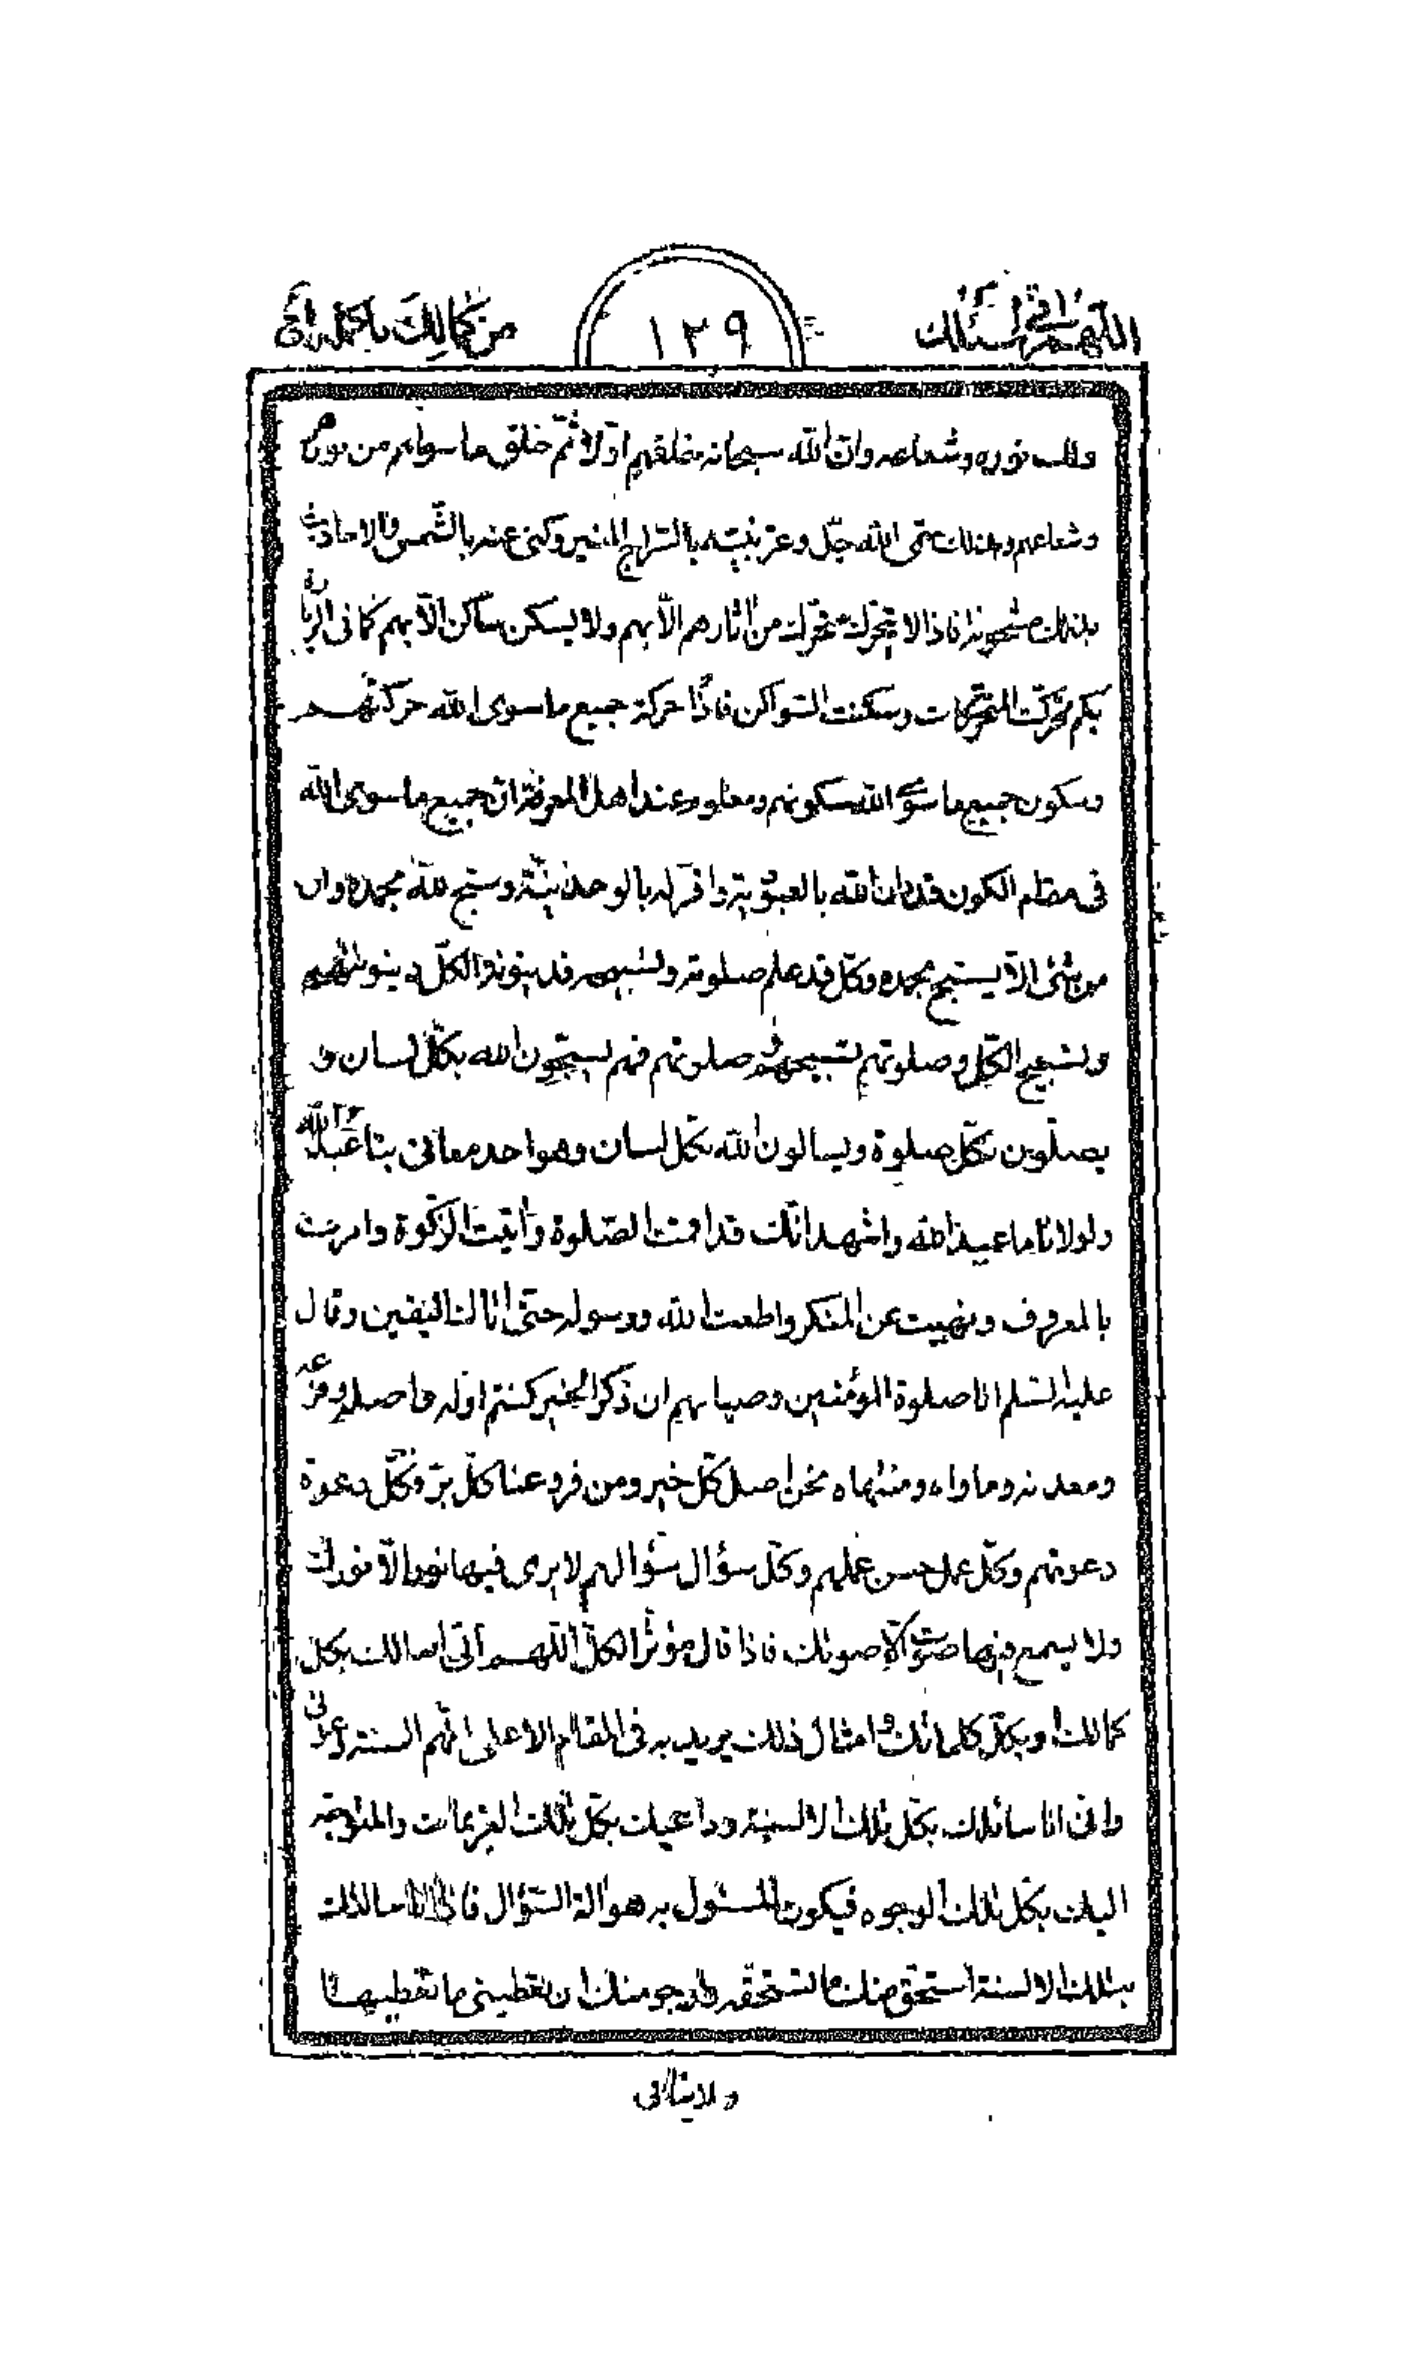 اللهم اني اسئلك
١٢٩
من كمالك باكمله الخ
نوره وشعاعه وان الله سبحانه خلقهم اولا ثم خلق ما سواهم من نورهم
وشعاعهم ولذلك سمى الله جل وعز نبيه بالسراج المنير وكنى عنه بالشمس والاحاديث
بذلك مشحونة فاذا لا يتحرك متحرك من اثارهم الا بهم ولا يسكن ساكن الا بهم كما في الزيارة
بكم تحركت المتحركات وسكنت السواكن فاذا حركة جميع ما سوى الله حركتهم
وسكون جميع ما سوى الله سكونهم ومعلوم عند اهل المعرفة ان جميع ما سوى الله
في الكون قد دان لله بالعبودية واقر له بالوحدانية وسبح لله بحمده وان
من شئ الا يسبح بحمده وكل قد علم صلوته وتسبيحه فدينونة الكل دينونتهم
وتسبيح الكل وصلوتهم تسبيحهم وصلوتهم فهم يسبحون الله بكل لسان و
يصلون بكل صلوة ويسالون الله بكل لسان وهو احد معاني بنا عبد الله
ولولانا ما عبد الله واشهد انك قد اقمت الصلوة وآتيت الزكوة وامرت
بالمعروف ونهيت عن المنكر واطعت الله ورسوله حتى اتاك اليقين وقال
عليه السلم انا صلوة المؤمنين وصيامهم ان ذكر الخير كنتم اوله واصله وفرعه
ومعدنه وماواه ومنتهاه نحن اصل كل خير ومن فروعنا كل بر وكل دعوة
دعوتهم وكل عمل حسن عملهم وكل سؤال سؤالهم لا يرى فيها نور الا نورك
ولا يسمع فيها صوت الا صوتك فاذا قال مؤثر الكل اللهم اني اسالك بكل
كمالك وبكل كلماتك وامثال ذلك يريد به في المقام الاعلى انهم السنة
واني انا سائلك بكل تلك الالسنة وداعيك بكل تلك العزيمات والمتوجه
اليك بكل تلك الوجوه فيكون المسئول به هو آلة السؤال فاذا انا سالتك
بتلك الالسنة استحق منك ما تستحقه وارجو منك ان تعطيني ما تعطيها
ولا ينافي